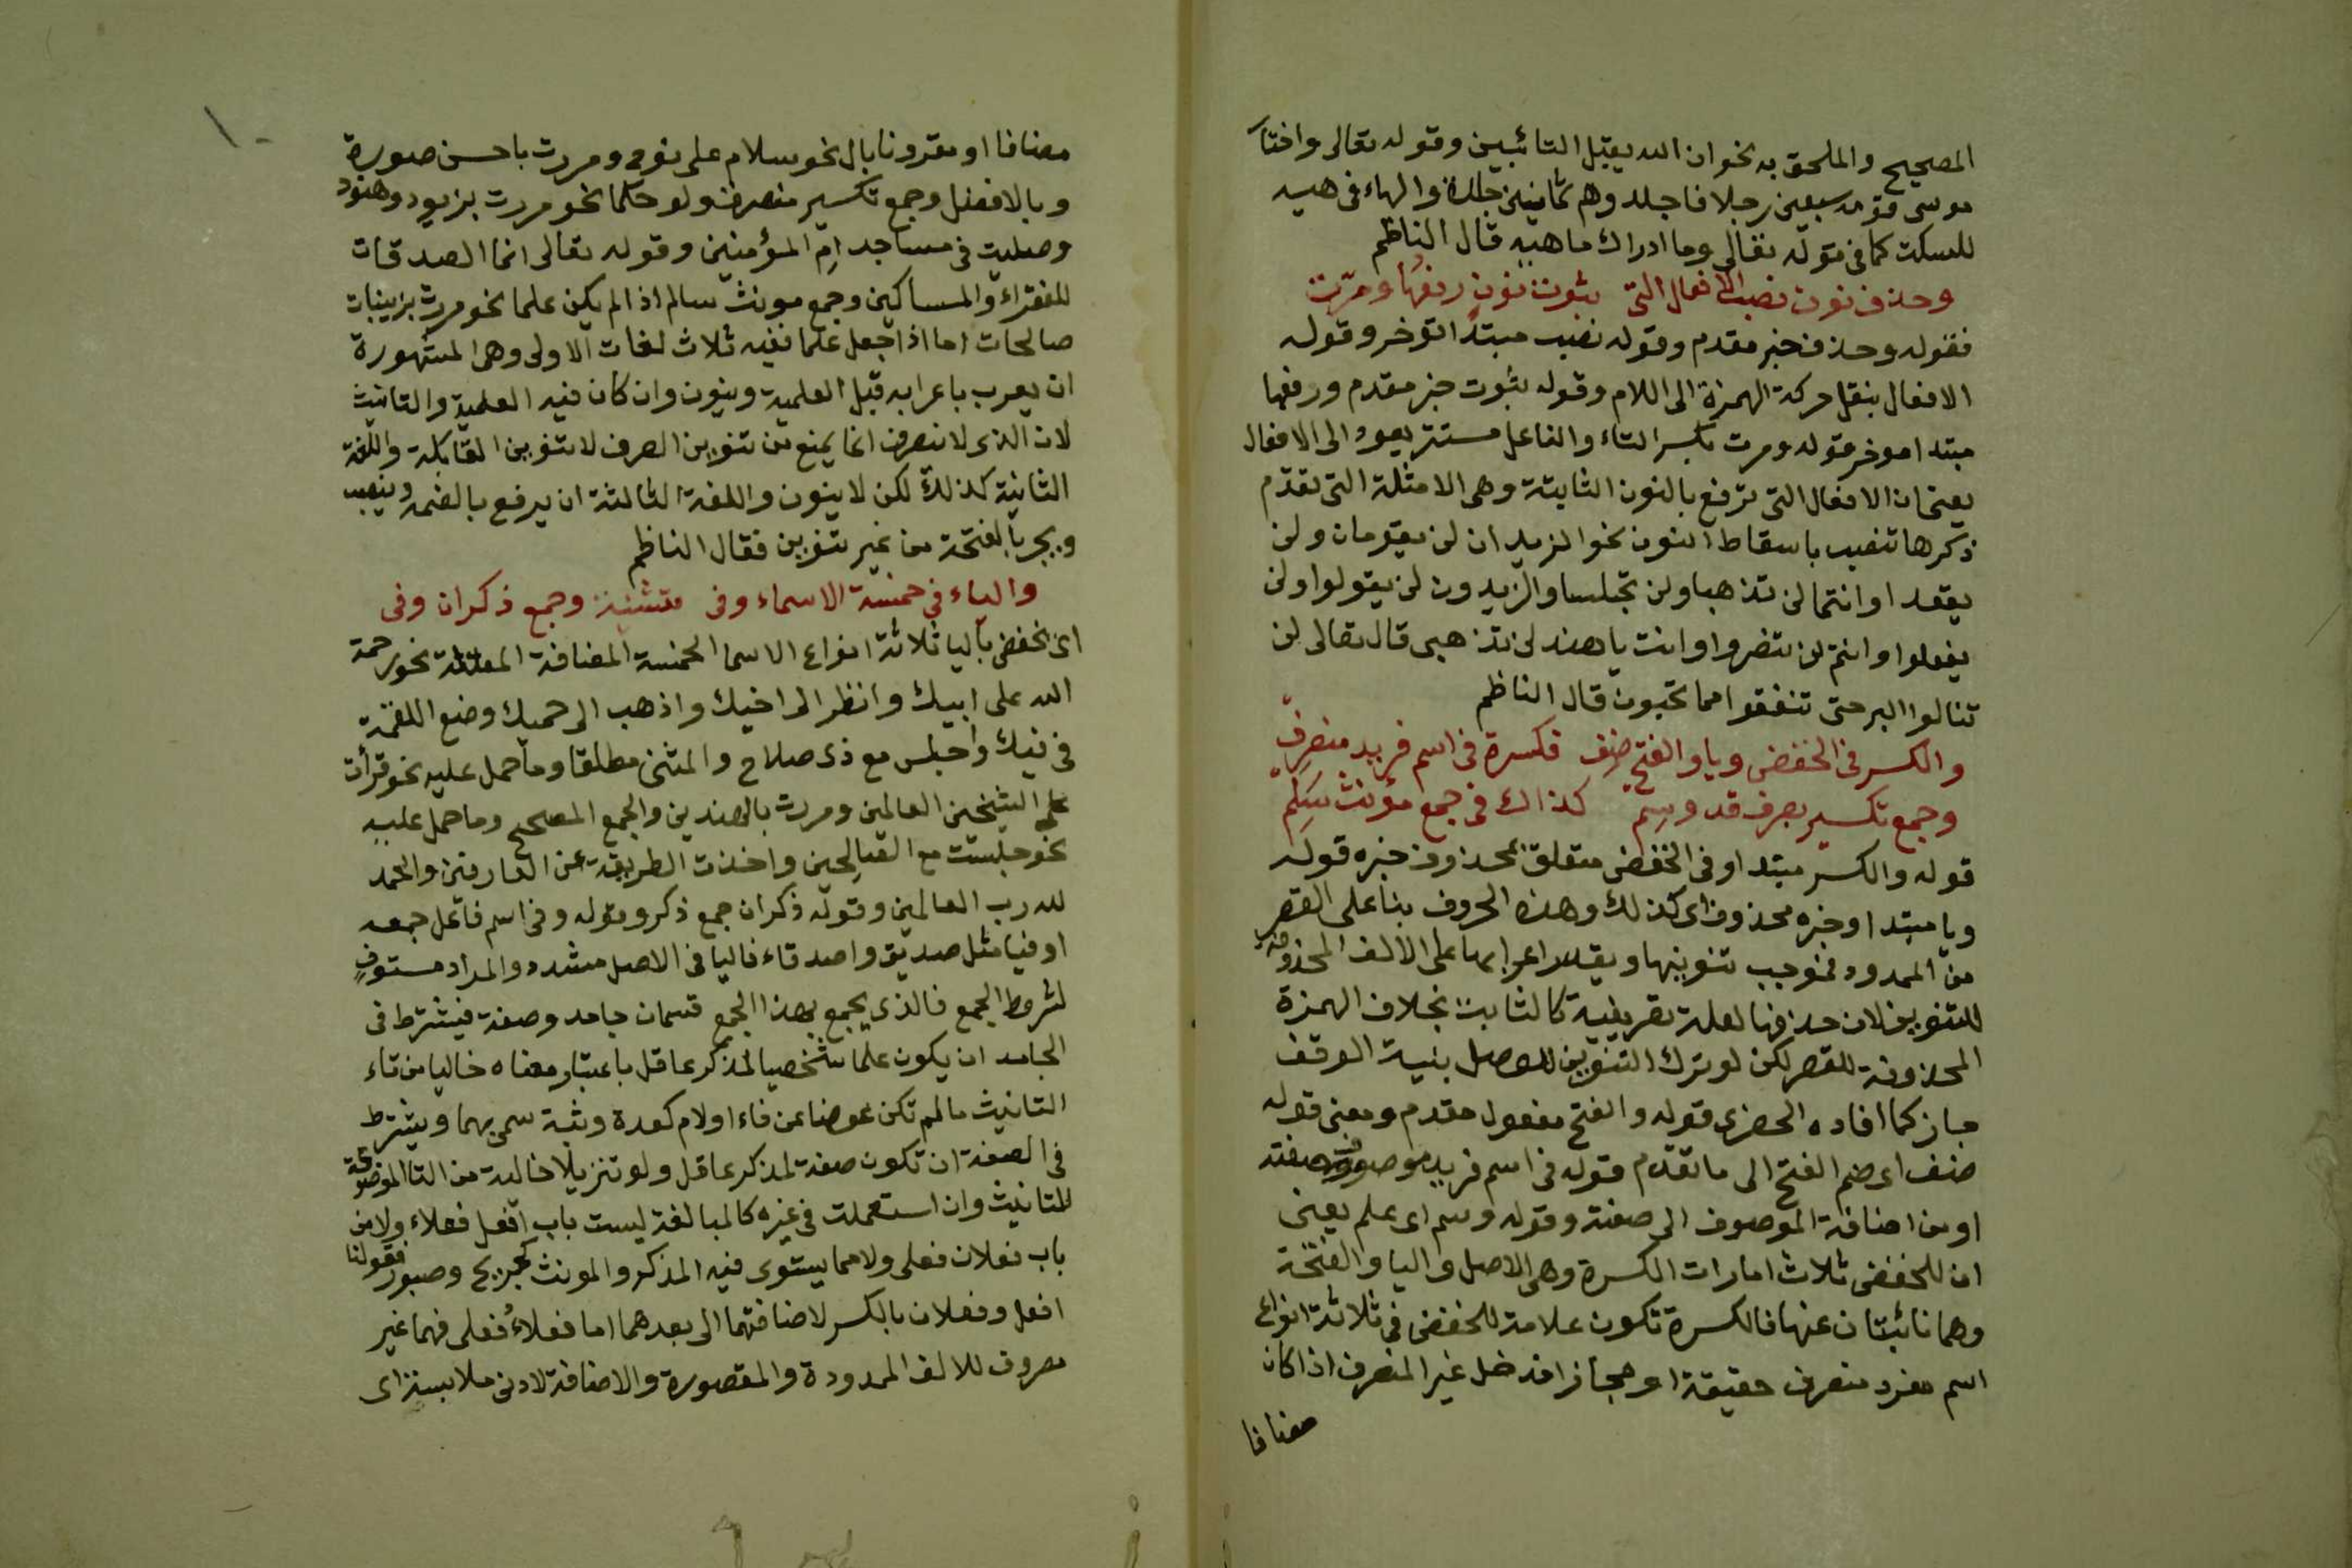 المصحيح والملحق به نحو ان الله يقبل التائبين وقوله تعالى واختار
موسى قومه سبعين رجلا فاجلدوهم ثمانين جلدة والهاء في هيه
للسكت كما في قوله تعالى وما ادراك ماهيه قال الناظم
وحذف نون نصب الافعال التي بثبوت نون رفعها ومرّت
فقوله وحذف خبر مقدم وقوله نصب مبتدا مؤخر وقوله
الافعال بنقل حركة الهمزة الى اللام وقوله بثبوت خبر مقدم ورفعها
مبتدا موخر قوله ومرت بكسر التاء والفاعل مستتر يعود الى الافعال
يعني ان الافعال التي ترفع بالنون الثابتة وهي الامثلة التي تقدّم
ذكرها تنصب باسقاط النون نحو الزيدان لن يقومان ولن
يقعدا وانتما لن تذهبا ولن تجلسا والزيدون لن يقولوا ولن
يفعلوا وانتم لن تنضروا وانت يا هند لن تذهبي قال تعالى لن
تنالوا البر حتى تنفقوا مما تحبون قال الناظم
والكسر في الخفض ويا والفتح ضِف فكسرة في اسم فريد منصرف
وجمع تكسير بصرف قد وسِم كذاك في جمع مؤنث سَلِم
قوله والكسر مبتدا وفي الخفض متعلق بمحذوف خبره قوله
ويا مبتدا وخبره محذوف اي كذلك وهذه الحروف بنا على القصر
من الممدود فنوجب تنوينها ويقدر اعرابها على الالف المحذوفة
للتنوين لان حذفها لعلة تصريفية كالثابت بخلاف الهمزة
المحذوفة للقصر لكن لو ترك التنوين للوصل بنية الوقف
جاز كما افاده الحضري قوله والفتح مفعول مقدم ومعنى قوله
ضف اي ضم الفتح الى ما تقدّم قوله في اسم فريد موصوف وصفته
او من اضافة الموصوف الى صفته وقوله وسم اي علم يعني
ان للخفض ثلاث امارات الكسرة وهي الاصل واليا والفتحة
وهما نائبتان عنها فالكسرة تكون علامة للخفض في ثلاثة انواع
اسم مفرد منصرف حقيقة او مجازا فدخل غير المنصرف اذا كان
مضافا
مضافا او مقرونا بال نحو سلام على نوح ومررت باحسن صورة
وبالافضل وجمع تكسير منصرف ولو حكما نحو مررت بزيود وهنود
وصليت في مساجد امِ المؤمنين وقوله تعالى انما الصدقات
للفقراء والمساكين وجمع مونث سالم اذا لم يكن علما نحو مررت بزينبات
صالحات اما اذا جعل علما ففيه ثلاث لغات الاولى وهي المشهورة
ان يعرب باعرابه قبل العلمية وينون وان كان فيه العلمية والتانيث
لان الذي لا ينصرف انما يمنع من تنوين الصرف لا تنوين المقابلة واللغة
الثانية كذلك لكن لا ينون واللغة الثالثة ان يرفع بالضمه وينصب
ويجر بالفتحة من غير تنوين فقال الناظم
والياء في خمسة الاسماء وفي متثنية وجمع ذكران وفي
اي نخفض باليا ثلاثة انواع الاسما الخمسة المضافة المعتلة نحو رحمة
الله على ابيك وانظر الى اخيك واذهب الى حميك وضع اللقمة
في فيك واجلس مع ذي صلاح والمثنى مطلقا وما حمل عليه نحو قرأت
على الشيخين العالمين ومررت بالهندين والجمع المصحح وما حمل عليه
نحو جلست مع الصالحين واخذت الطريقة عن العارفين والحمد
لله رب العالمين وقوله ذكران جمع ذكر وقوله وفي اسم فاعل جمعه
اوفيا مثل صديق واصدقاء فاليا في الاصل مشدد والمراد مستوفٍ
لشروط الجمع فالذي يجمع بهذا الجمع قسمان جامد وصفة فيشترط في
الجامد ان يكون علما شخصيا لمذكر عاقل باعتبار معناه خاليا من تاء
التانيث ما لم تكن عوضا من فاء او لام كعدة وثبة سمي بهما ويشترط
في الصفة ان تكون صفة لمذكر عاقل ولو تنزيلا خالية من التا الموضوعة
للتانيث وان استعملت في غيره كالمبالغة ليست باب افعل فعلاء ولا من
باب فعلان فعلى ولا مما يستوي فيه المذكر والمونث كجريح وصبور فقولنا
افعل وفعلان بالكسر لاضافتهما الى بعدهما اما فعلاءُ فعلى فهما غير
مصروف للالف الممدودة والمقصورة والاضافة لادنى ملابسة اي